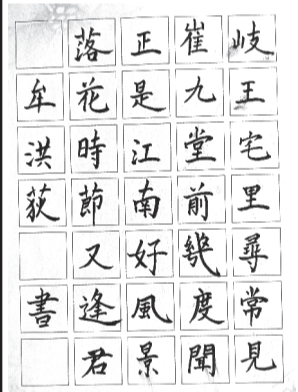 岐王宅里尋常見
崔九堂前幾度聞
正是江南好風景
落花時節又逢君
牟洪荻書